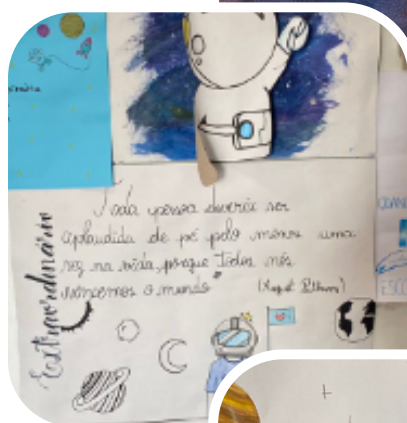 Extraordinário
Toda pessoa deveria ser
aplaudida de pé pelo menos uma
vez na vida, porque todos nós
vencemos o mundo"